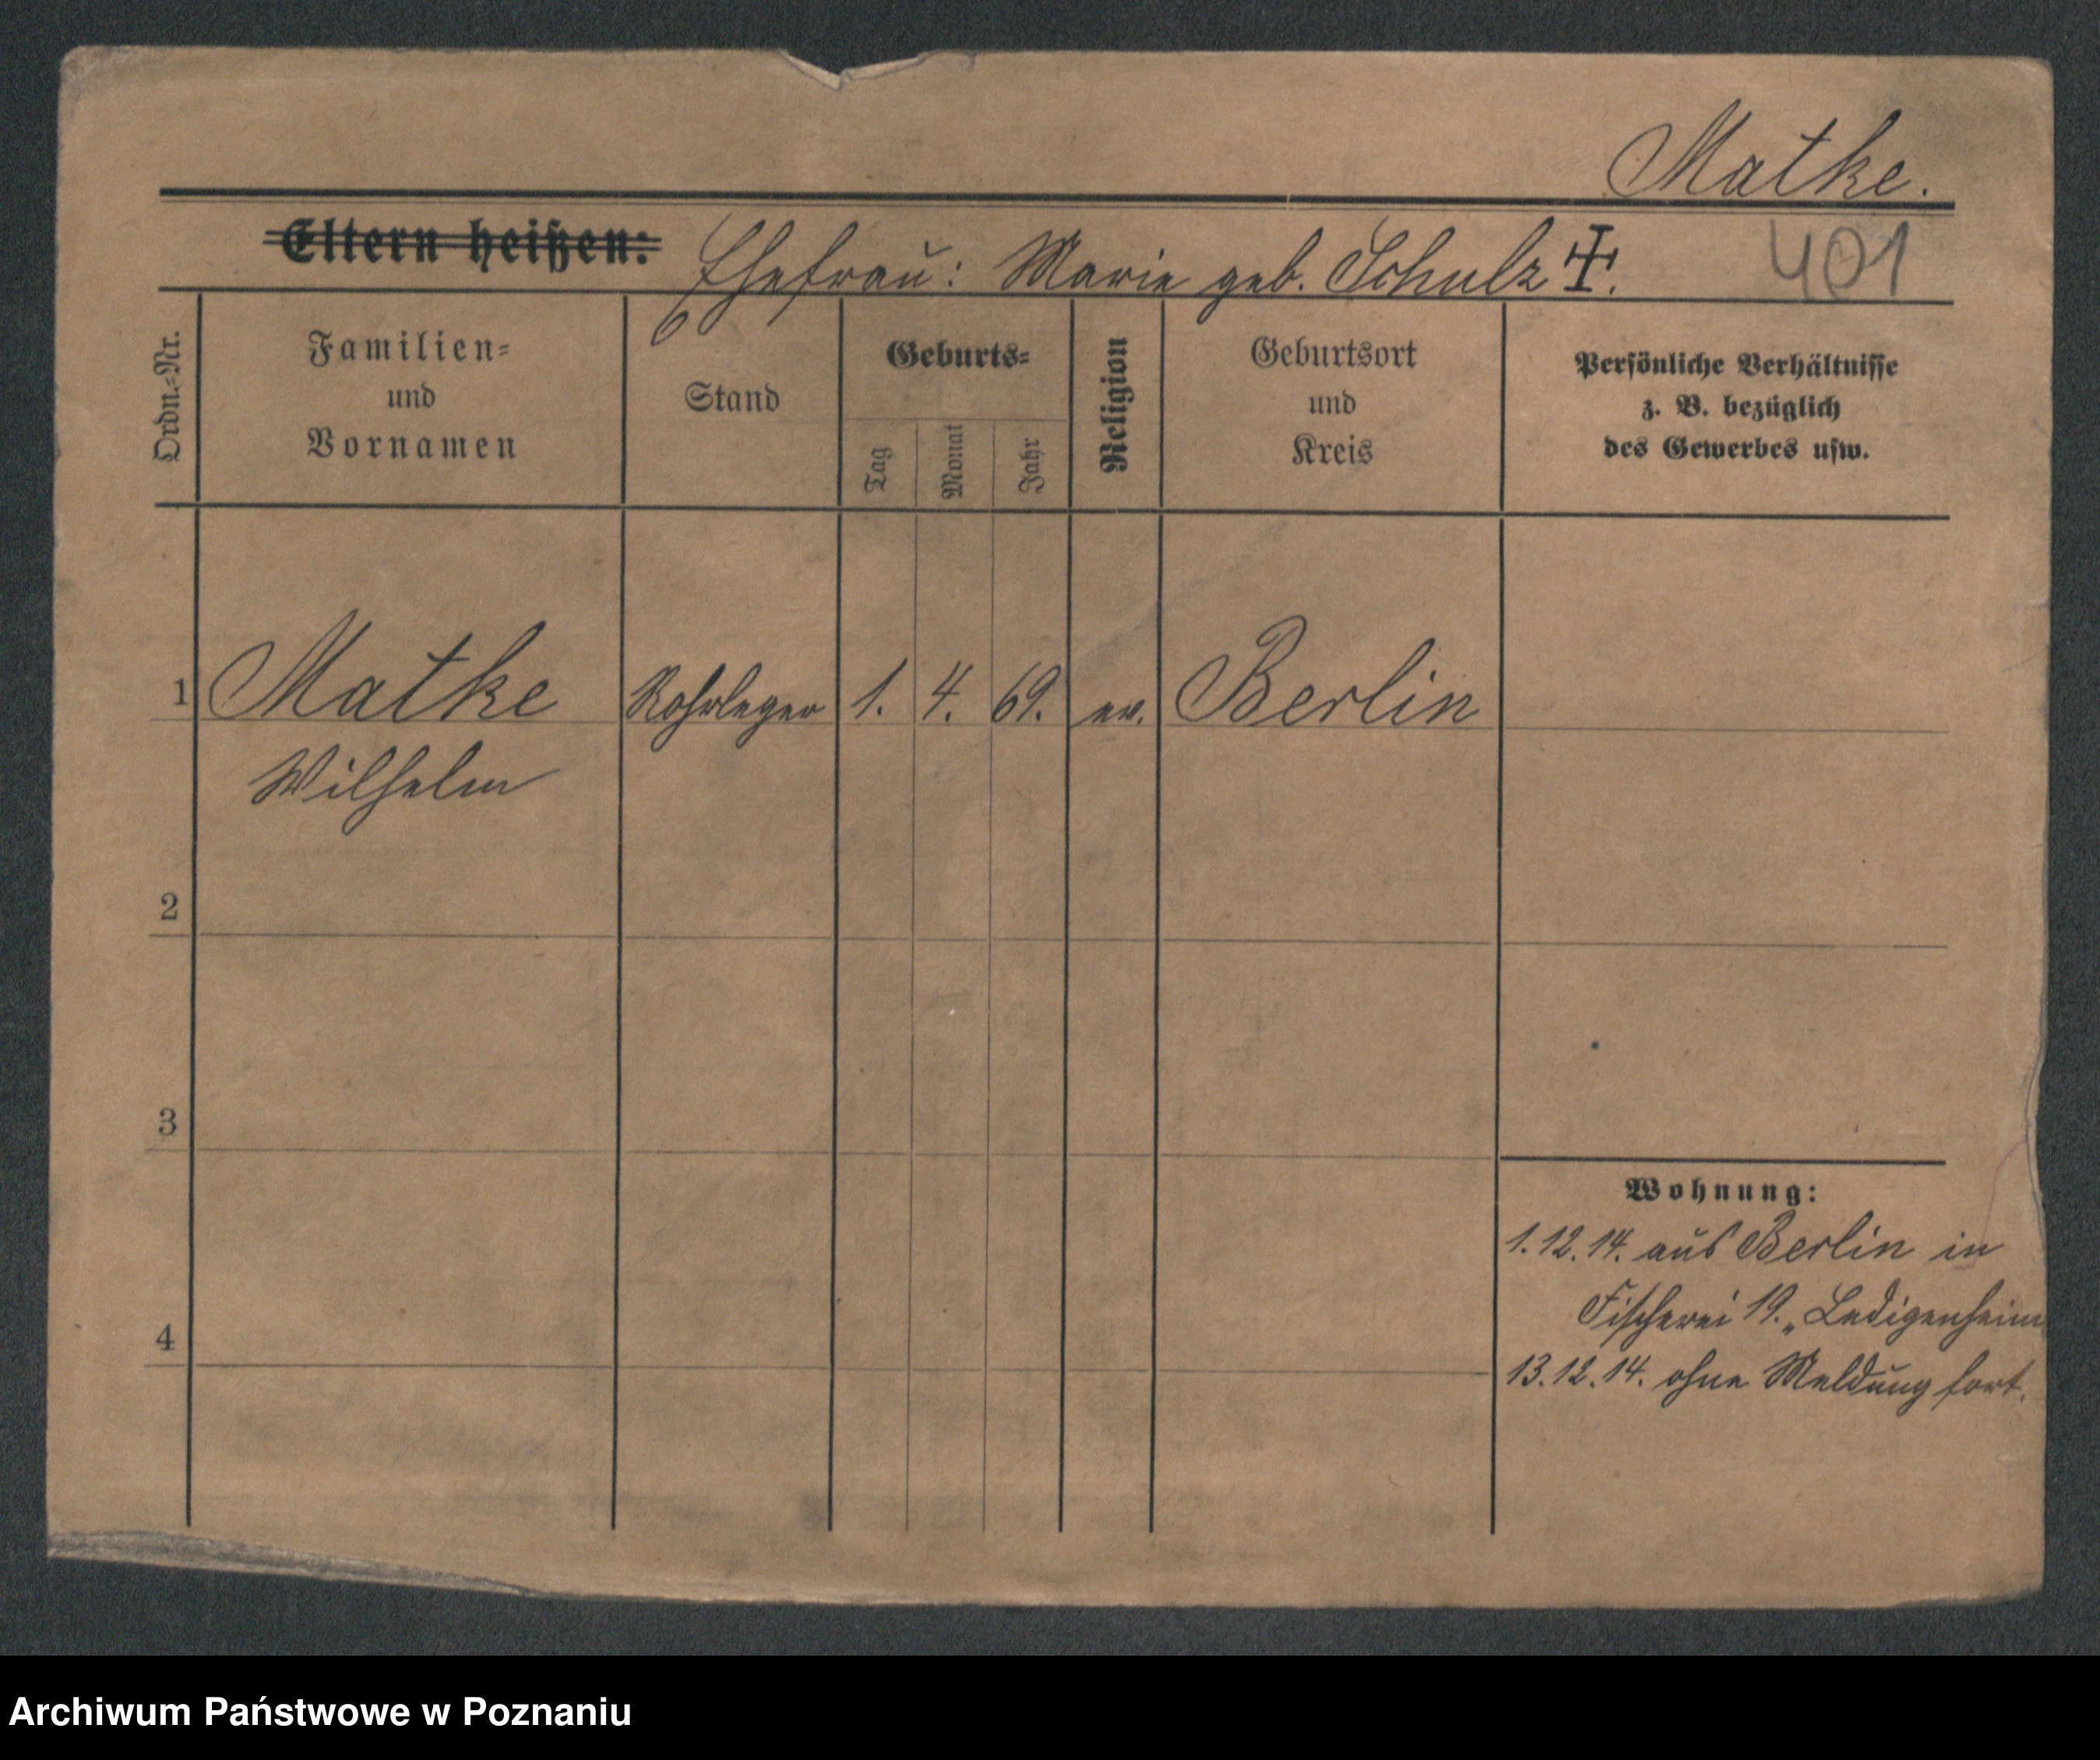 Matke.
Eltern heißen: Ehefrau: Marie geb. Schulz ‡. 401
Ordn.-Nr.
Familien-
und
Vornamen
Stand
Geburts-
Tag
Monat
Jahr
Religion
Geburtsort
und
Kreis
Persönliche Verhältnisse
z. B. bezüglich
des Gewerbes usw.
1 Matke Rohrleger 1. 4. 69. ev. Berlin
Wilhelm
2
3
Wohnung:
1.12.14. aus Berlin in
Fischerei 19. „Ledigenheim
4
13.12.14. ohne Meldung fort.
Archiwum Państwowe w Poznaniu